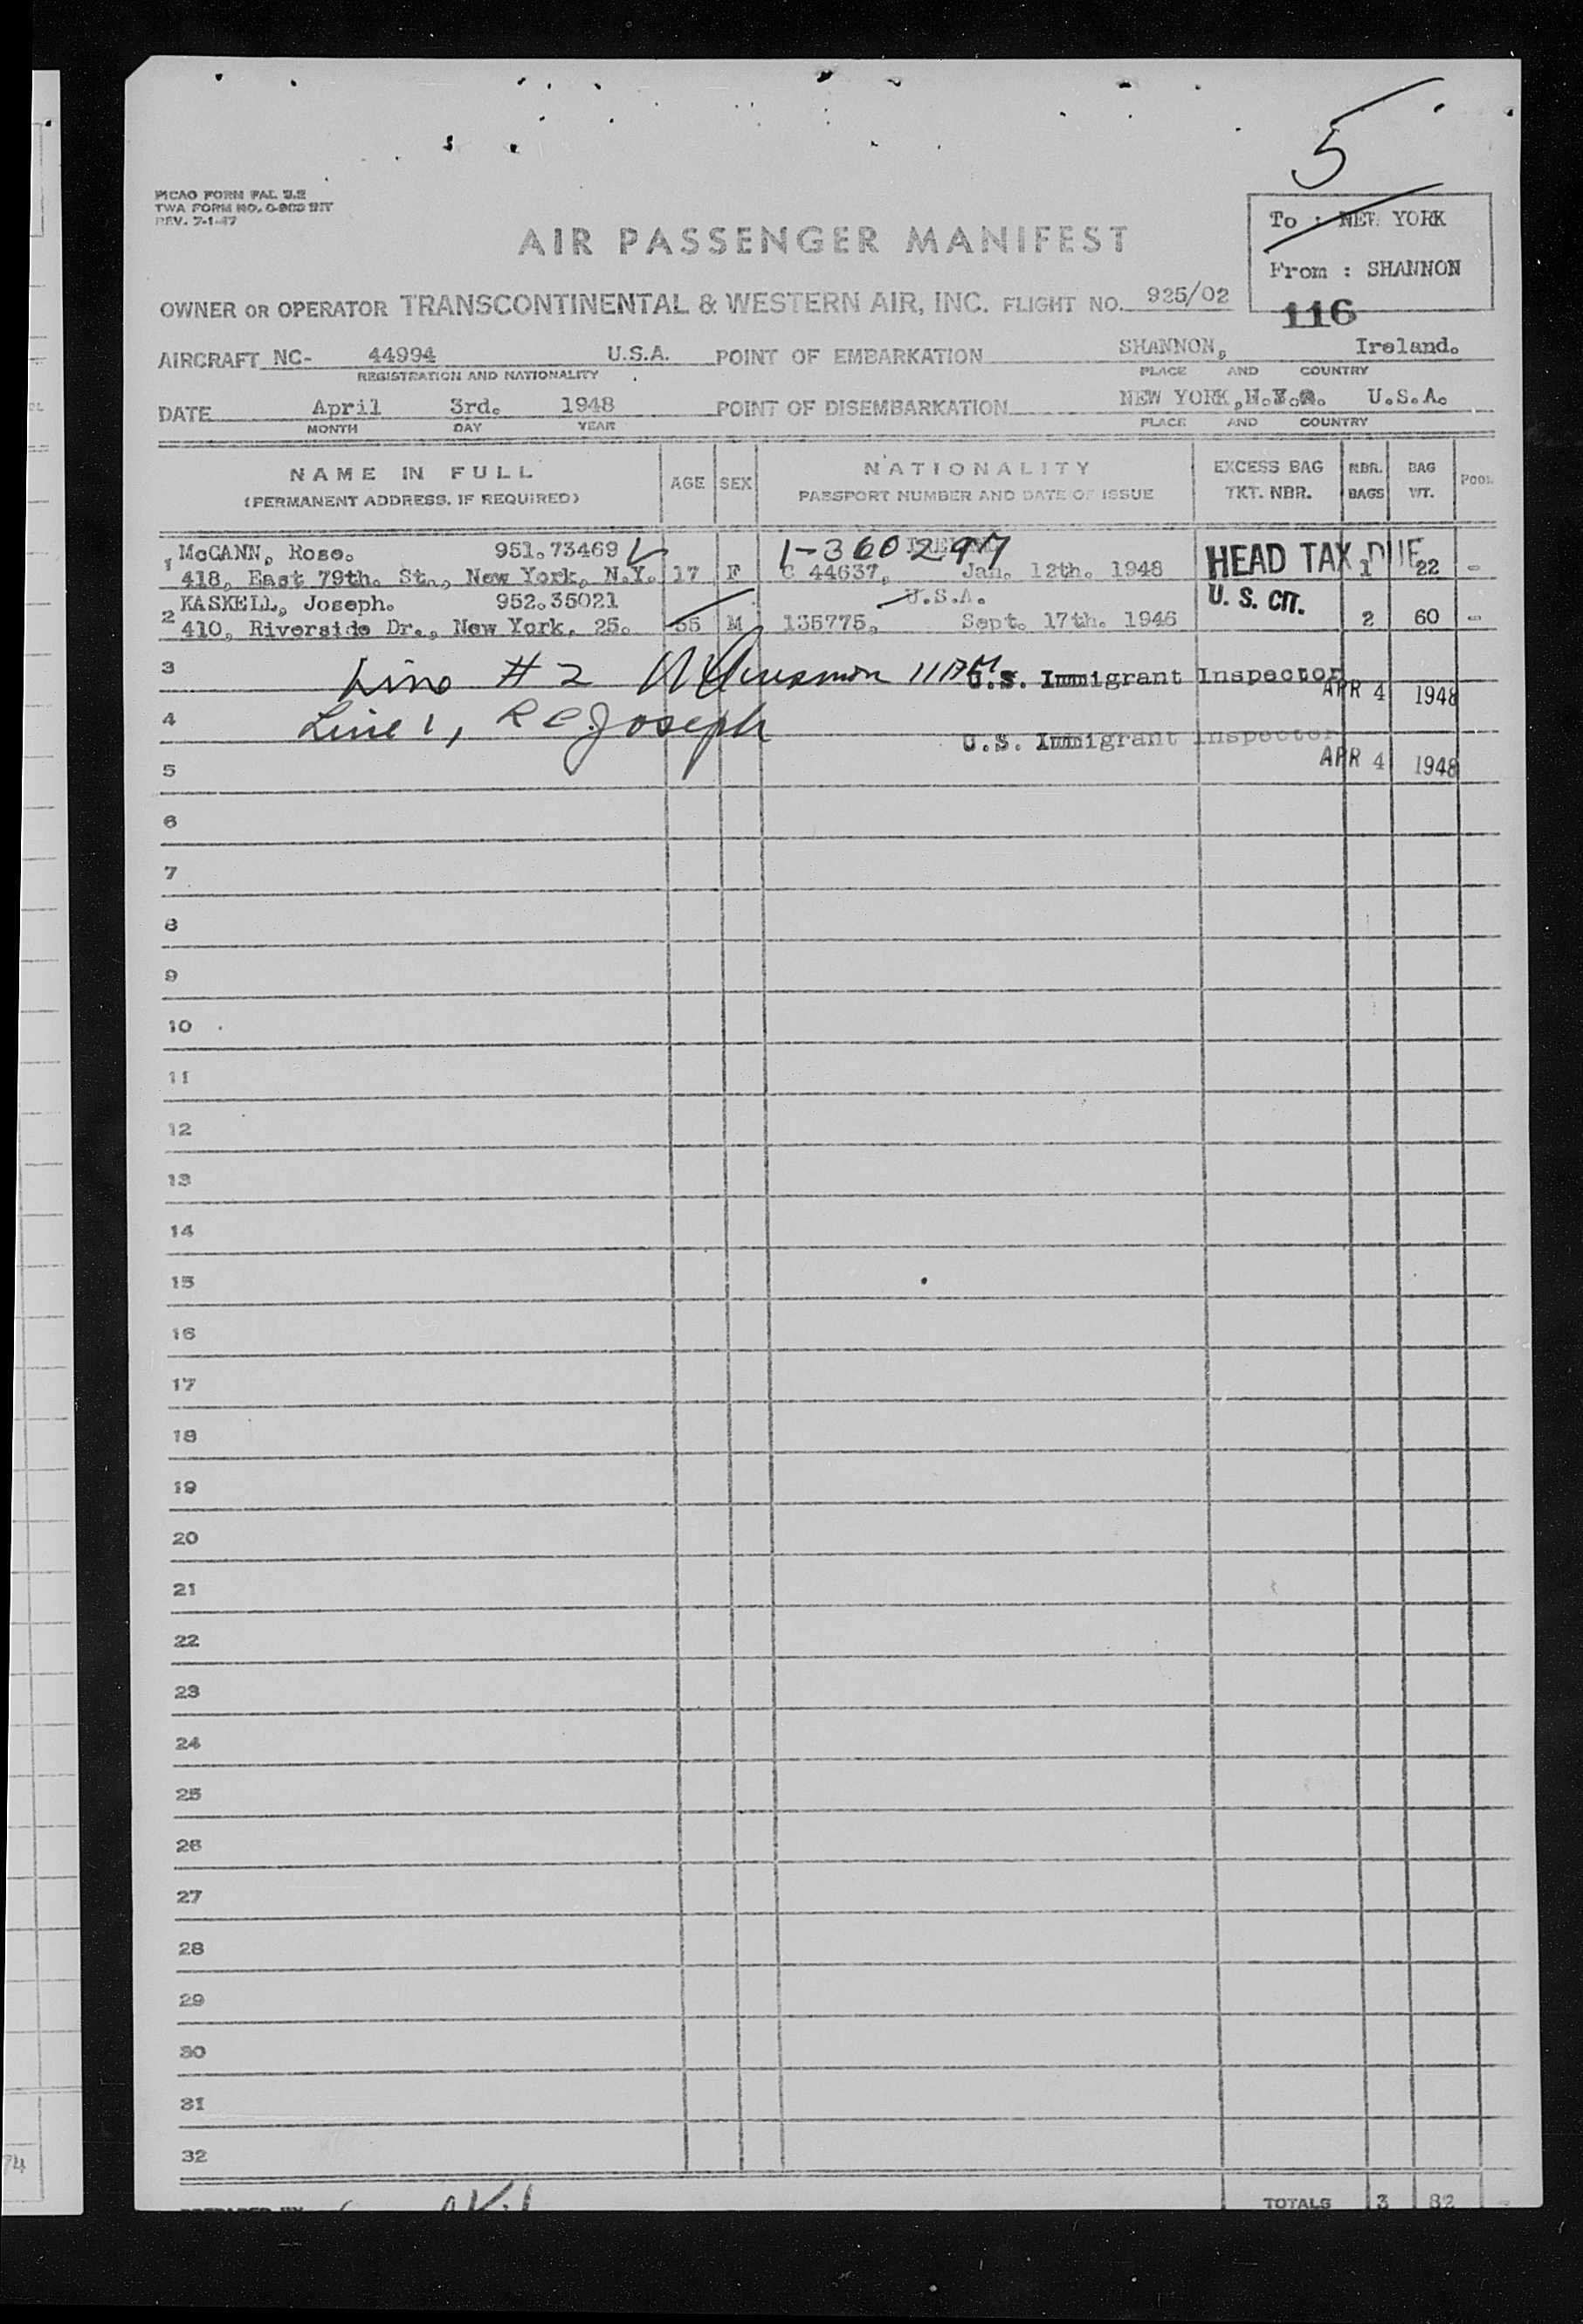 5
PICAO FORM PAL 2.2
TWA FORM NO.
REV. 7-1-47
To : NEW YORK
From : SHANNON
116
AIR PASSENGER MANIFEST
OWNER OR OPERATOR TRANSCONTINENTAL & WESTERN AIR, INC. FLIGHT NO. 925/02
AIRCRAFT NC- 44994 U.S.A. POINT OF EMBARKATION SHANNON, Ireland.
REGISTRATION AND NATIONALITY PLACE AND COUNTRY
DATE April 3rd. 1948 POINT OF DISEMBARKATION NEW YORK, U.S.A.
MONTH DAY YEAR PLACE AND COUNTRY
NAME IN FULL AGE SEX NATIONALITY EXCESS BAG NBR. BAG POOL
(PERMANENT ADDRESS, IF REQUIRED) PASSPORT NUMBER AND DATE OF ISSUE TKT. NBR. BAGS WT.
1 McCANN, Rose. 951.73469 1-360297 HEAD TAX DUE
418, East 79th. St., New York, N.Y. 17 F C 44637, Jan. 12th. 1948 1 22 -
2 KASKELL, Joseph. 952.35021 U.S.A. U. S. CIT.
410, Riverside Dr., New York. 25. 55 M 135775, Sept. 17th. 1946 2 60 -
3 Line # 2 U.S. Immigrant Inspector
APR 4 1948
4 Line 1, R C Joseph
U.S. Immigrant Inspector
5 APR 4 1948
6
7
8
9
10
11
12
13
14
15
16
17
18
19
20
21
22
23
24
25
26
27
28
29
30
31
32
74
PREPARED BY TOTALS 3 82 -